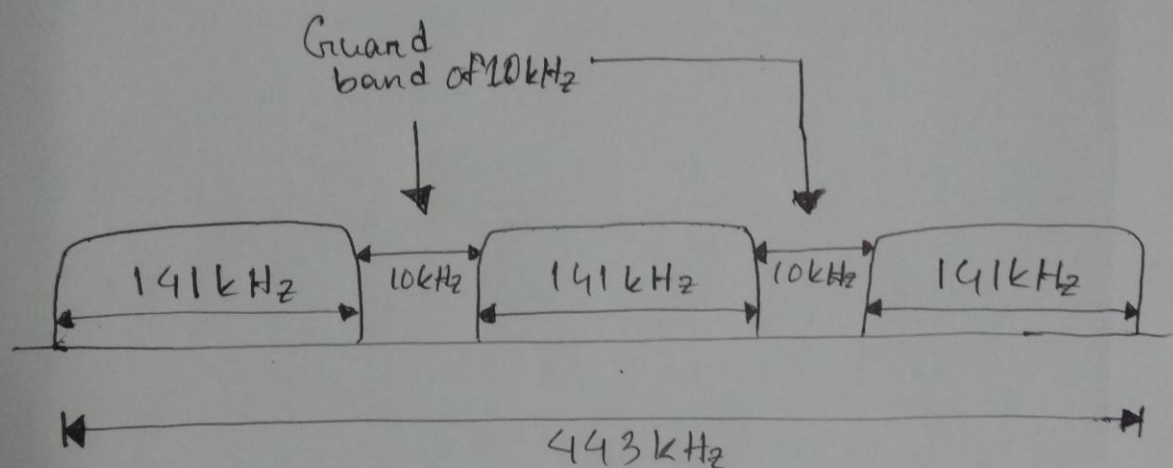 Guard
band of 10kHz
141kHz
10kHz
141kHz
10kHz
141kHz
443kHz